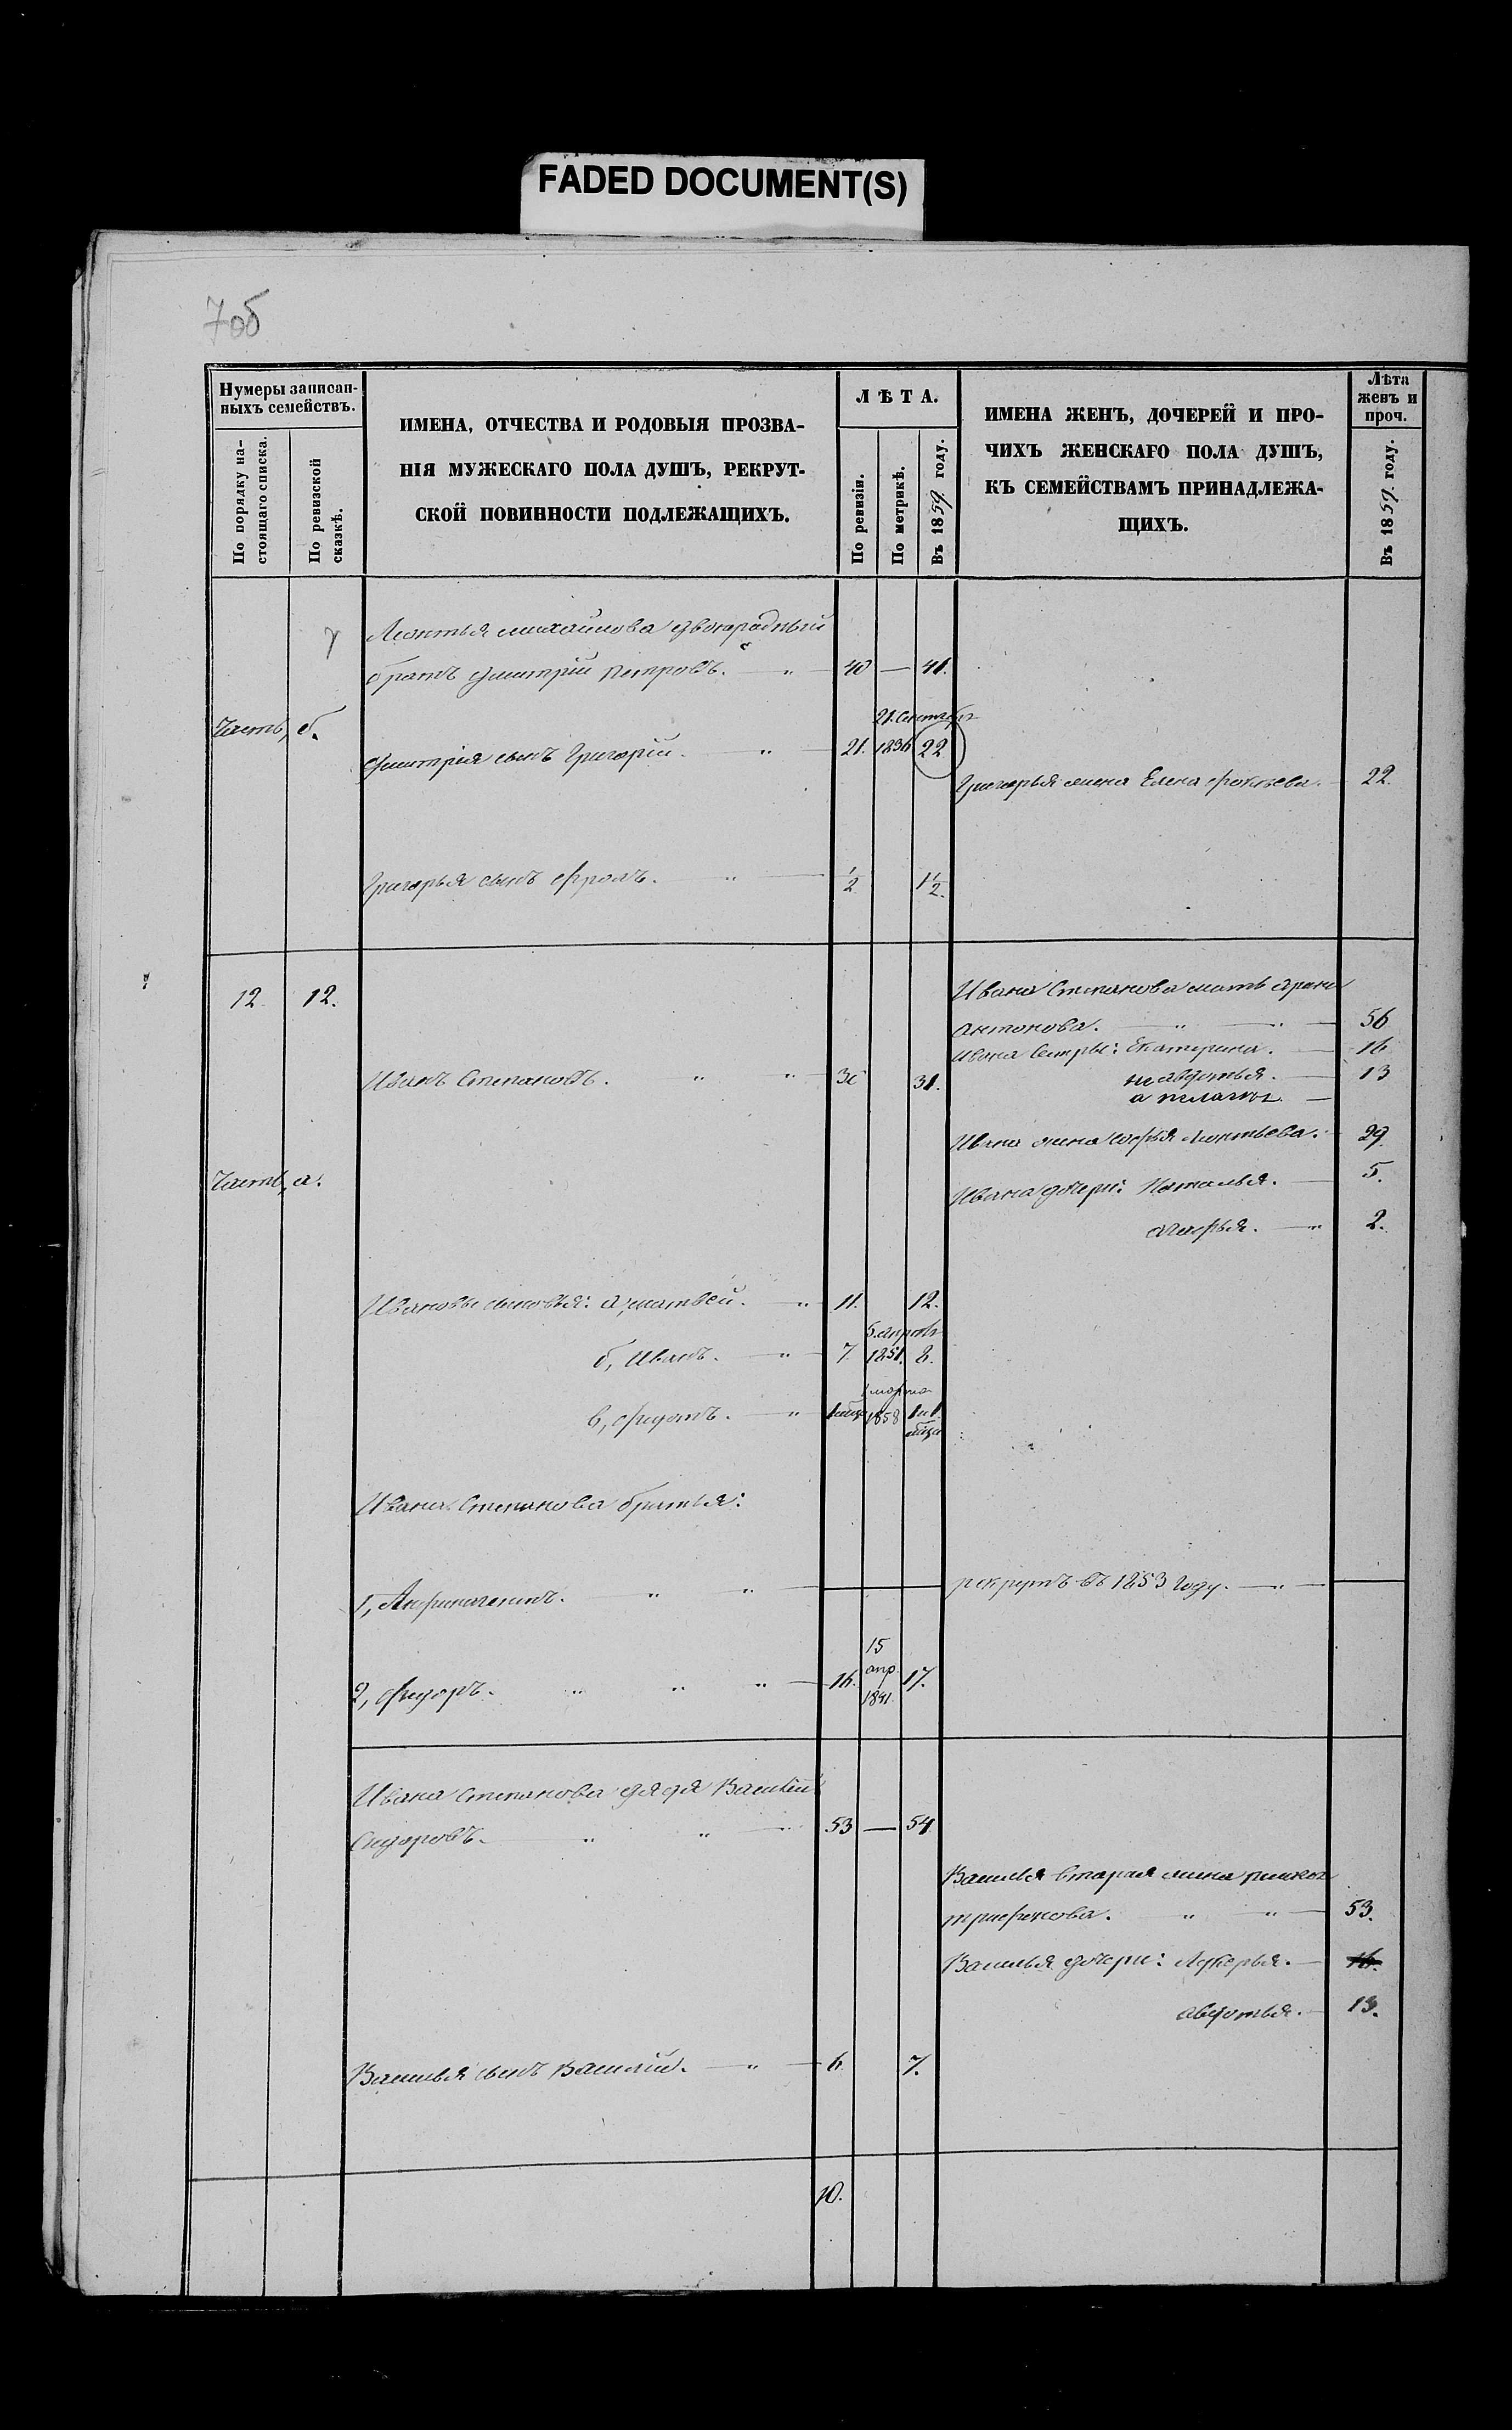 FADED DOCUMENT(S)
7об
Нумеры записан-
ныхъ семействъ.
По порядку на-
стоящаго списка.
По ревизской
сказкѣ.
ИМЕНА, ОТЧЕСТВА И РОДОВЫЯ ПРОЗВА-
НІЯ МУЖЕСКАГО ПОЛА ДУШЪ, РЕКРУТ-
СКОЙ ПОВИННОСТИ ПОДЛЕЖАЩИХЪ.
ЛѢТА.
По ревизіи.
По метрикѣ.
Въ 1859 году.
ИМЕНА ЖЕНЪ, ДОЧЕРЕЙ И ПРО-
ЧИХЪ ЖЕНСКАГО ПОЛА ДУШЪ,
КЪ СЕМЕЙСТВАМЪ ПРИНАДЛЕЖА-
ЩИХЪ.
Лѣта
женъ и
проч.
Въ 1859. году.
Леонтья Михайлова двоюрадный
братъ Дмитрій Петровъ. 40 — 41.
Часть, б.
21. Сентябр
Дмитрія сынъ Григорій. 21. 1836 22
Григорья жена Елена 22.
Григорья сынъ Фролъ. 1/2 1 1/2.
12 12.
Ивана Степанова мать Арина
Антонова. 56
Ивана Сестры: Екатерина. 16
Авдотья. 13
Иванъ Степановъ. 30 31.
а Пелагея. —
Ивана жена Софья Леонтьева. 29
Часть, а.
Ивана дочери: Наталья. 5.
Марфья. 2.
Ивановы сыновья: а, Матвей. 11. 12.
5. апрель
б, Иванъ. 7. 1851. 8.
1 марта
в, Федотъ. 1 мѣця 1858 1 и 1
мѣця
Ивана Степанова братья:
1, рекрутъ въ 1853 году.
15
апр.
2, Федоръ. 16. 1841. 17.
Ивана Степанова дядя Василій
Сидоровъ. 53 — 54
Василья вторая жена
Трифонова. 53.
Василья дочери: Лукерья. 16.
Авдотья. 13.
Василья сынъ Василій. 6. 7.
10.